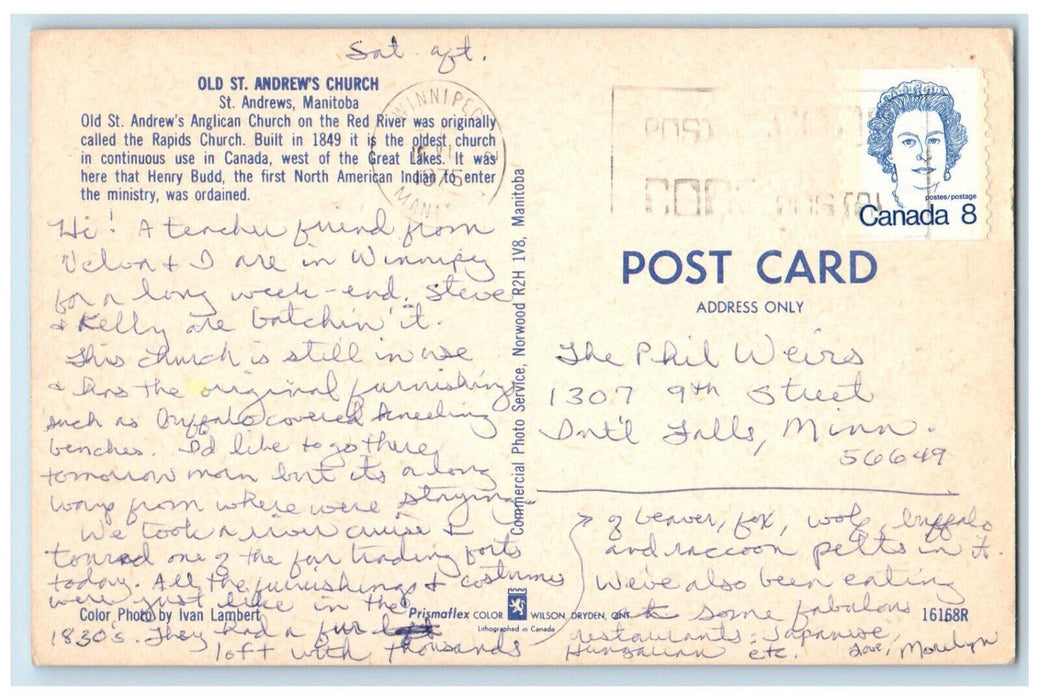 Sat aft.
OLD ST. ANDREW'S CHURCH
St. Andrews, Manitoba
Old St. Andrew's Anglican Church on the Red River was originally
called the Rapids Church. Built in 1849 it is the oldest church
in continuous use in Canada, west of the Great Lakes. It was
here that Henry Budd, the first North American Indian to enter
the ministry, was ordained.
Hi! A teacher friend from
Velva & I are in Winnipeg
for a long week-end. Steve
& Kelly are batchin' it.
This church is still in use
& has the original furnishings
such as buffalo covered kneeling
benches. I'd like to go there
tomorrow morn but its a long
way from where were staying.
We took a river cruise &
toured one of the fur trading forts
today. All the furnishings & costumes
were just like in the
1830's. They had a fur
loft with thousands
Color Photo by Ivan Lambert
Prismaflex COLOR WILSON, DRYDEN, ONT.
Lithographed in Canada
16168R
Commercial Photo Service, Norwood R2H 1V8, Manitoba
WINNIPEG
1975
MANITOBA
postes/postage
Canada 8
POST CARD
ADDRESS ONLY
The Phil Weirs
1307 9th Street
Int'l Falls, Minn.
56649
of beaver, fox, wolf, buffalo
and raccoon pelts in it.
We've also been eating
at some fabulous
restaurants: Japanese,
Hungarian etc. Love, Marilyn